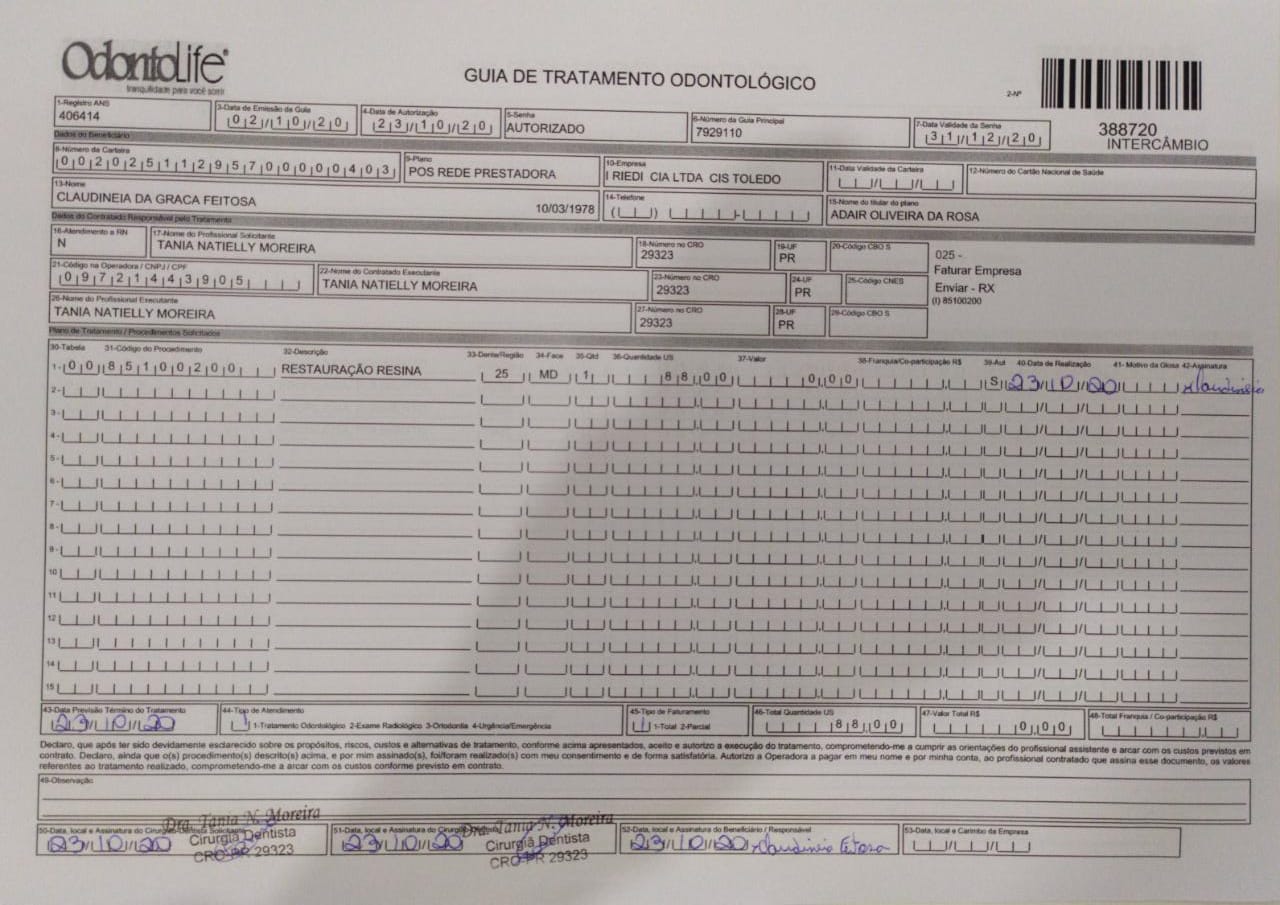 OdontoLife®
tranquilidade para você sorrir
GUIA DE TRATAMENTO ODONTOLÓGICO
2-Nº
388720
INTERCÂMBIO
1-Registro ANS
406414
3-Data de Emissão da Guia
02/10/20
4-Data de Autorização
23/10/20
5-Senha
AUTORIZADO
6-Número da Guia Principal
7929110
7-Data Validade da Senha
31/12/20
Dados do Beneficiário
8-Número da Carteira
00202511295700000403
9-Plano
POS REDE PRESTADORA
10-Empresa
I RIEDI CIA LTDA CIS TOLEDO
11-Data Validade da Carteira
12-Número do Cartão Nacional de Saúde
13-Nome
CLAUDINEIA DA GRACA FEITOSA 10/03/1978
14-Telefone
15-Nome do titular do plano
ADAIR OLIVEIRA DA ROSA
Dados do Contratado Responsável pelo Tratamento
16-Atendimento a RN
N
17-Nome do Profissional Solicitante
TANIA NATIELLY MOREIRA
18-Número no CRO
29323
19-UF
PR
20-Código CBO S
025 -
Faturar Empresa
Enviar - RX
(I) 85100200
21-Código na Operadora / CNPJ / CPF
09721443905
22-Nome do Contratado Executante
TANIA NATIELLY MOREIRA
23-Número no CRO
29323
24-UF
PR
25-Código CNES
26-Nome do Profissional Executante
TANIA NATIELLY MOREIRA
27-Número no CRO
29323
28-UF
PR
29-Código CBO S
Plano de Tratamento / Procedimentos Solicitados
30-Tabela 31-Código do Procedimento 32-Descrição 33-Dente/Região 34-Face 35-Qtd 36-Quantidade US 37-Valor 38-Franquia/Co-participação R$ 39-Aut 40-Data de Realização 41- Motivo da Glosa 42-Assinatura
1- 00 85100200 RESTAURAÇÃO RESINA 25 MD 1 88,00 0,00 S 23/10/20 Claudineia
2-
3-
4-
5-
6-
7-
8-
9-
10
11
12
13
14
15
43-Data Previsão Término do Tratamento
23/10/20
44-Tipo de Atendimento
1-Tratamento Odontológico 2-Exame Radiológico 3-Ortodontia 4-Urgência/Emergência
45-Tipo de Faturamento
1-Total 2-Parcial
46-Total Quantidade US
88,00
47-Valor Total R$
0,00
48-Total Franquia / Co-participação R$
Declaro, que após ter sido devidamente esclarecido sobre os propósitos, riscos, custos e alternativas de tratamento, conforme acima apresentados, aceito e autorizo a execução do tratamento, comprometendo-me a cumprir as orientações do profissional assistente e arcar com os custos previstos em
contrato. Declaro, ainda que o(s) procedimento(s) descrito(s) acima, e por mim assinado(s), foi/foram realizado(s) com meu consentimento e de forma satisfatória. Autorizo a Operadora a pagar em meu nome e por minha conta, ao profissional contratado que assina esse documento, os valores
referentes ao tratamento realizado, comprometendo-me a arcar com os custos conforme previsto em contrato.
49-Observação
50-Data, local e Assinatura do Cirurgião-Dentista Solicitante
23/10/20
Dra. Tania N. Moreira
Cirurgiã Dentista
CRO-PR 29323
51-Data, local e Assinatura do Cirurgião-Dentista
23/10/20
Dra. Tania N. Moreira
Cirurgiã Dentista
CRO-PR 29323
52-Data, local e Assinatura do Beneficiário / Responsável
23/10/20 Claudineia Feitosa
53-Data, local e Carimbo da Empresa